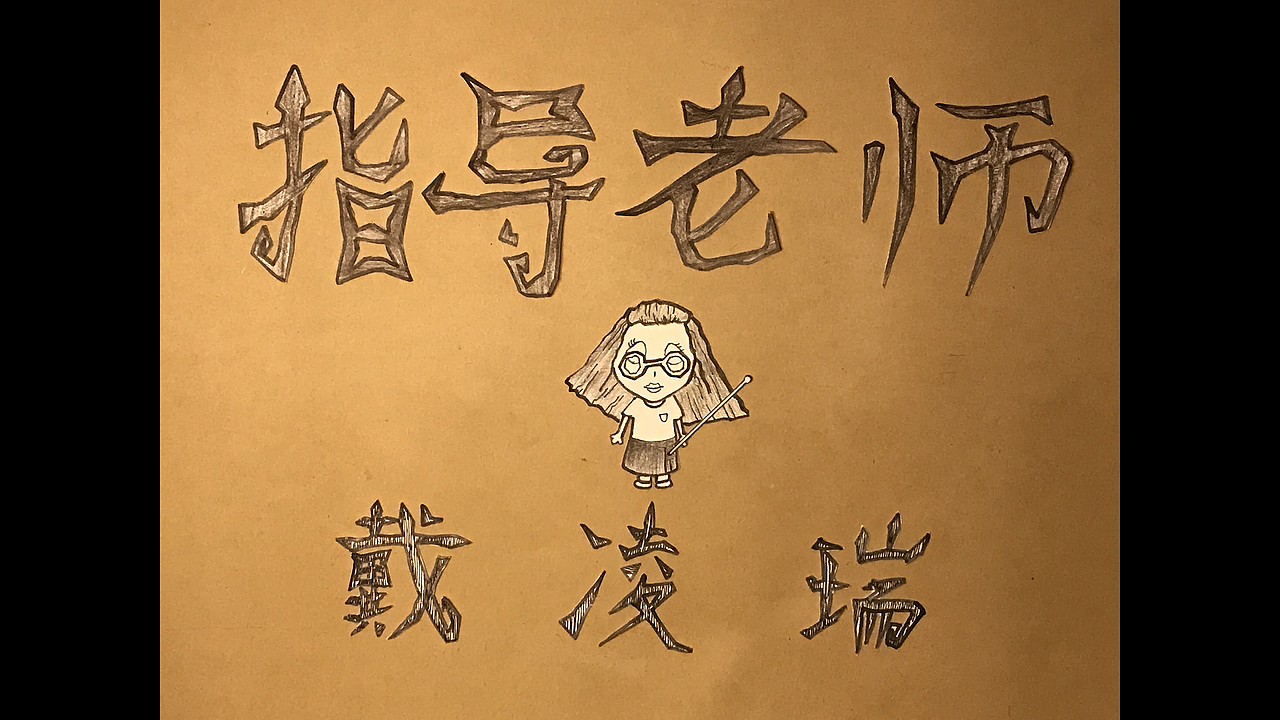 指导老师
戴凌瑞